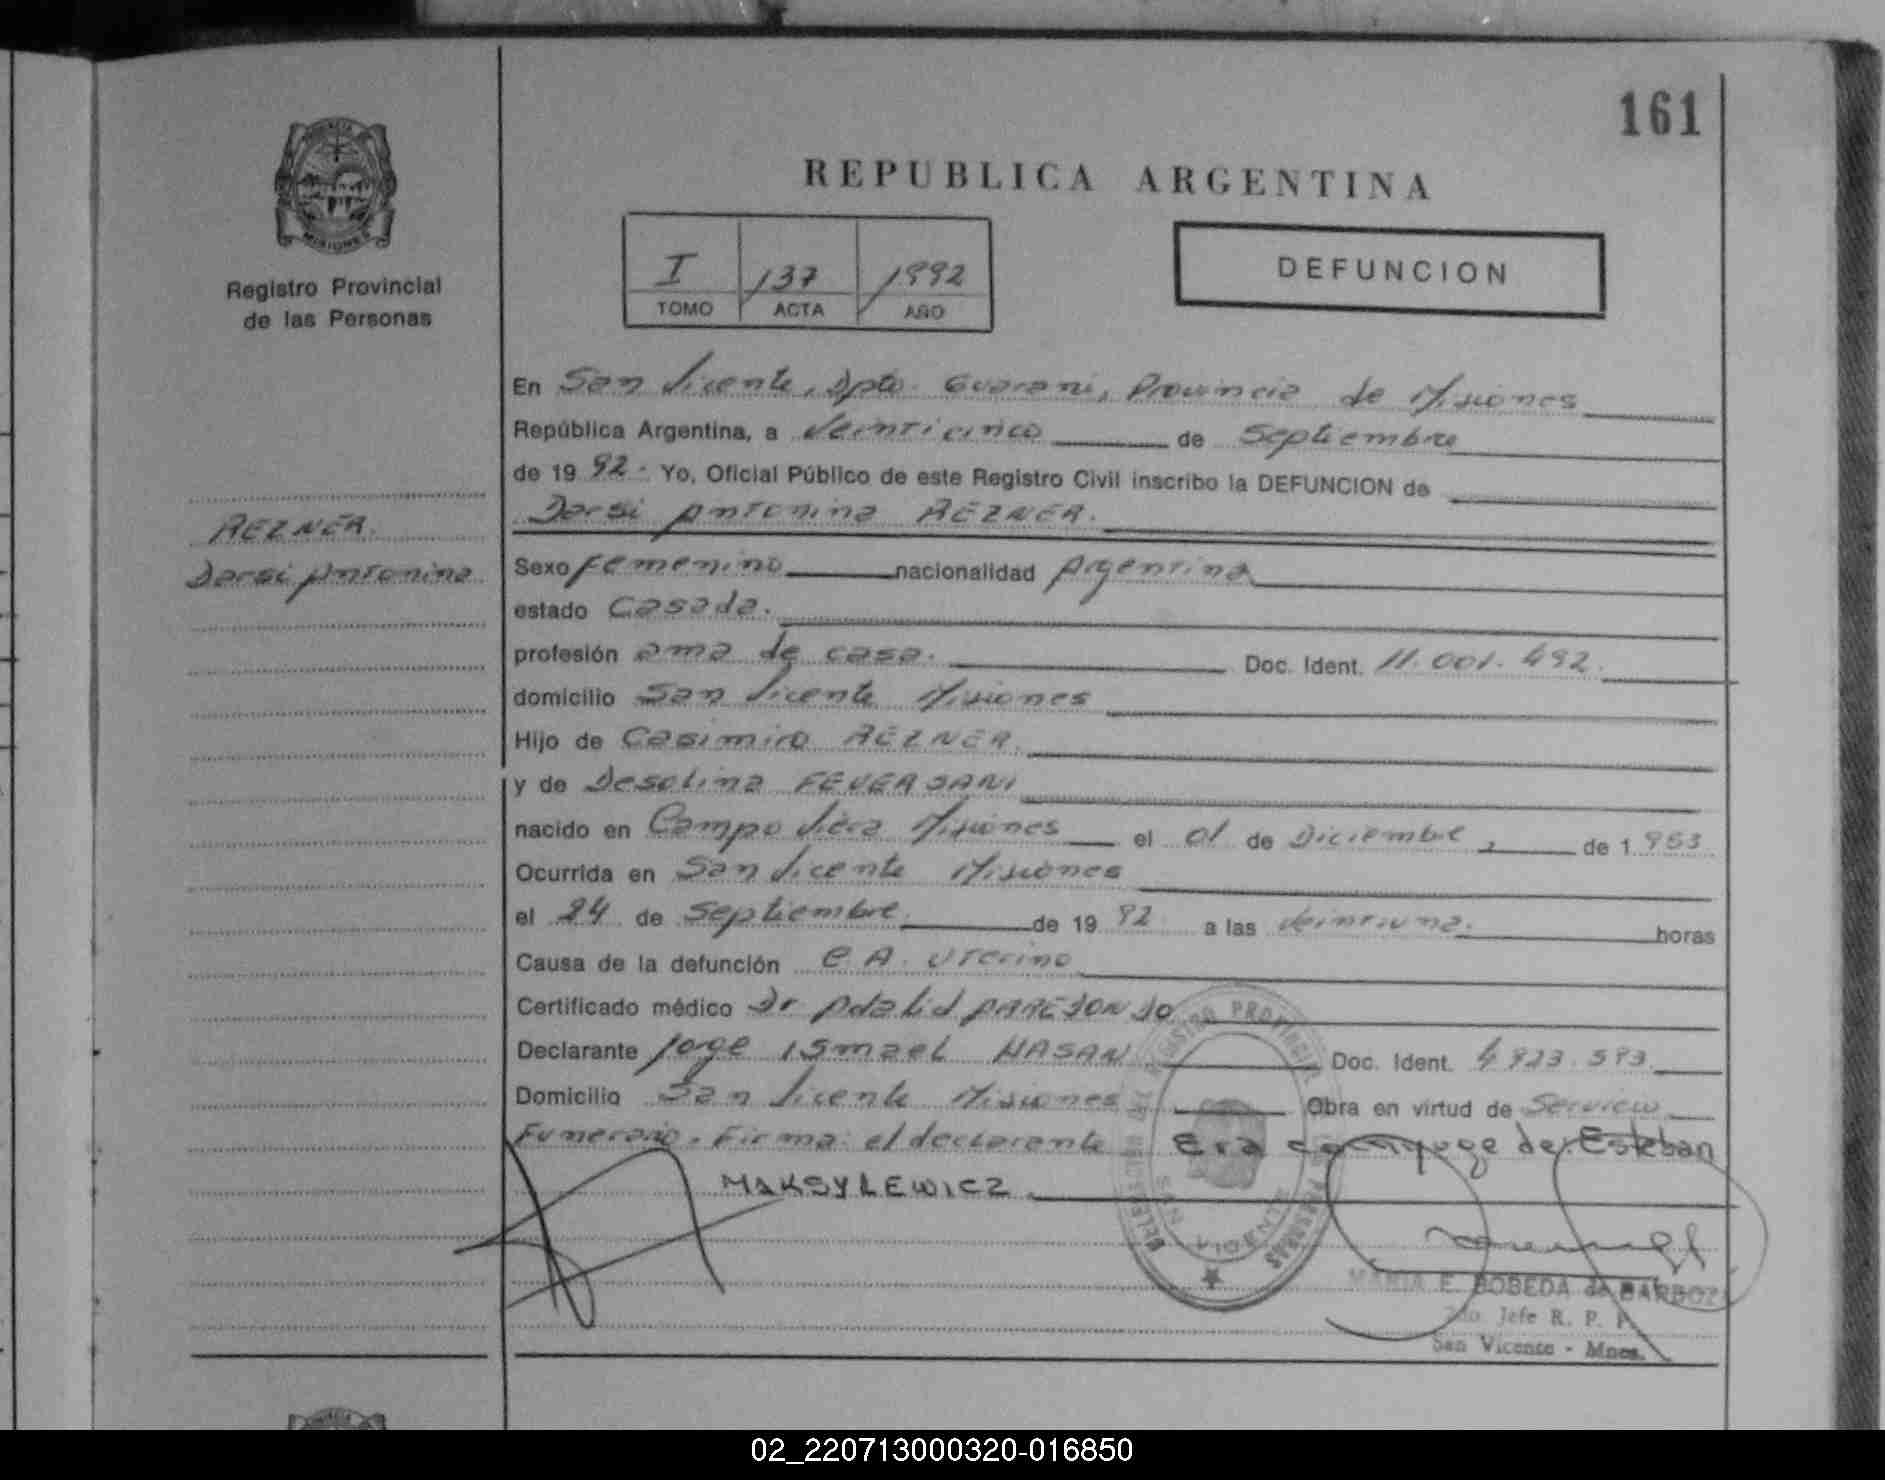 161
REPUBLICA ARGENTINA
PROVINCIA DE
MISIONES
Registro Provincial
de las Personas
I 137 1992
TOMO ACTA AÑO
DEFUNCION
REZNER.
Dorsi Antonina
En San Vicente, Dpto. Guarani, Provincia de Misiones
República Argentina, a veinticinco de Septiembre
de 19 92. Yo, Oficial Público de este Registro Civil inscribo la DEFUNCION de
Dorsi Antonina REZNER.
Sexo femenino nacionalidad Argentina
estado Casada.
profesión ama de casa. Doc. Ident. 11.001.492.
domicilio San Vicente Misiones
Hijo de Casimiro REZNER.
y de Desolina FEVERSANI
nacido en Campo Viera Misiones el 01 de Diciembre, de 1.953
Ocurrida en San Vicente Misiones
el 24 de Septiembre. de 19 92 a las veintiuna. horas
Causa de la defunción C A. Uterino
Certificado médico Dr Adalid PAREJONDO
Declarante Jorge Ismael HASAN Doc. Ident. 4.823.593.
Domicilio San Vicente Misiones Obra en virtud de Servicio
Funerario. Firma: el declarante Era conyuge de: Esteban
MAKSYLEWICZ.
REGISTRO PROVINCIAL
PERSONAS
SAN VICENTE
MARIA E. BOBEDA de BARBOZA
2do. Jefe R. P. P.
San Vicente - Mnes.
02_220713000320-016850